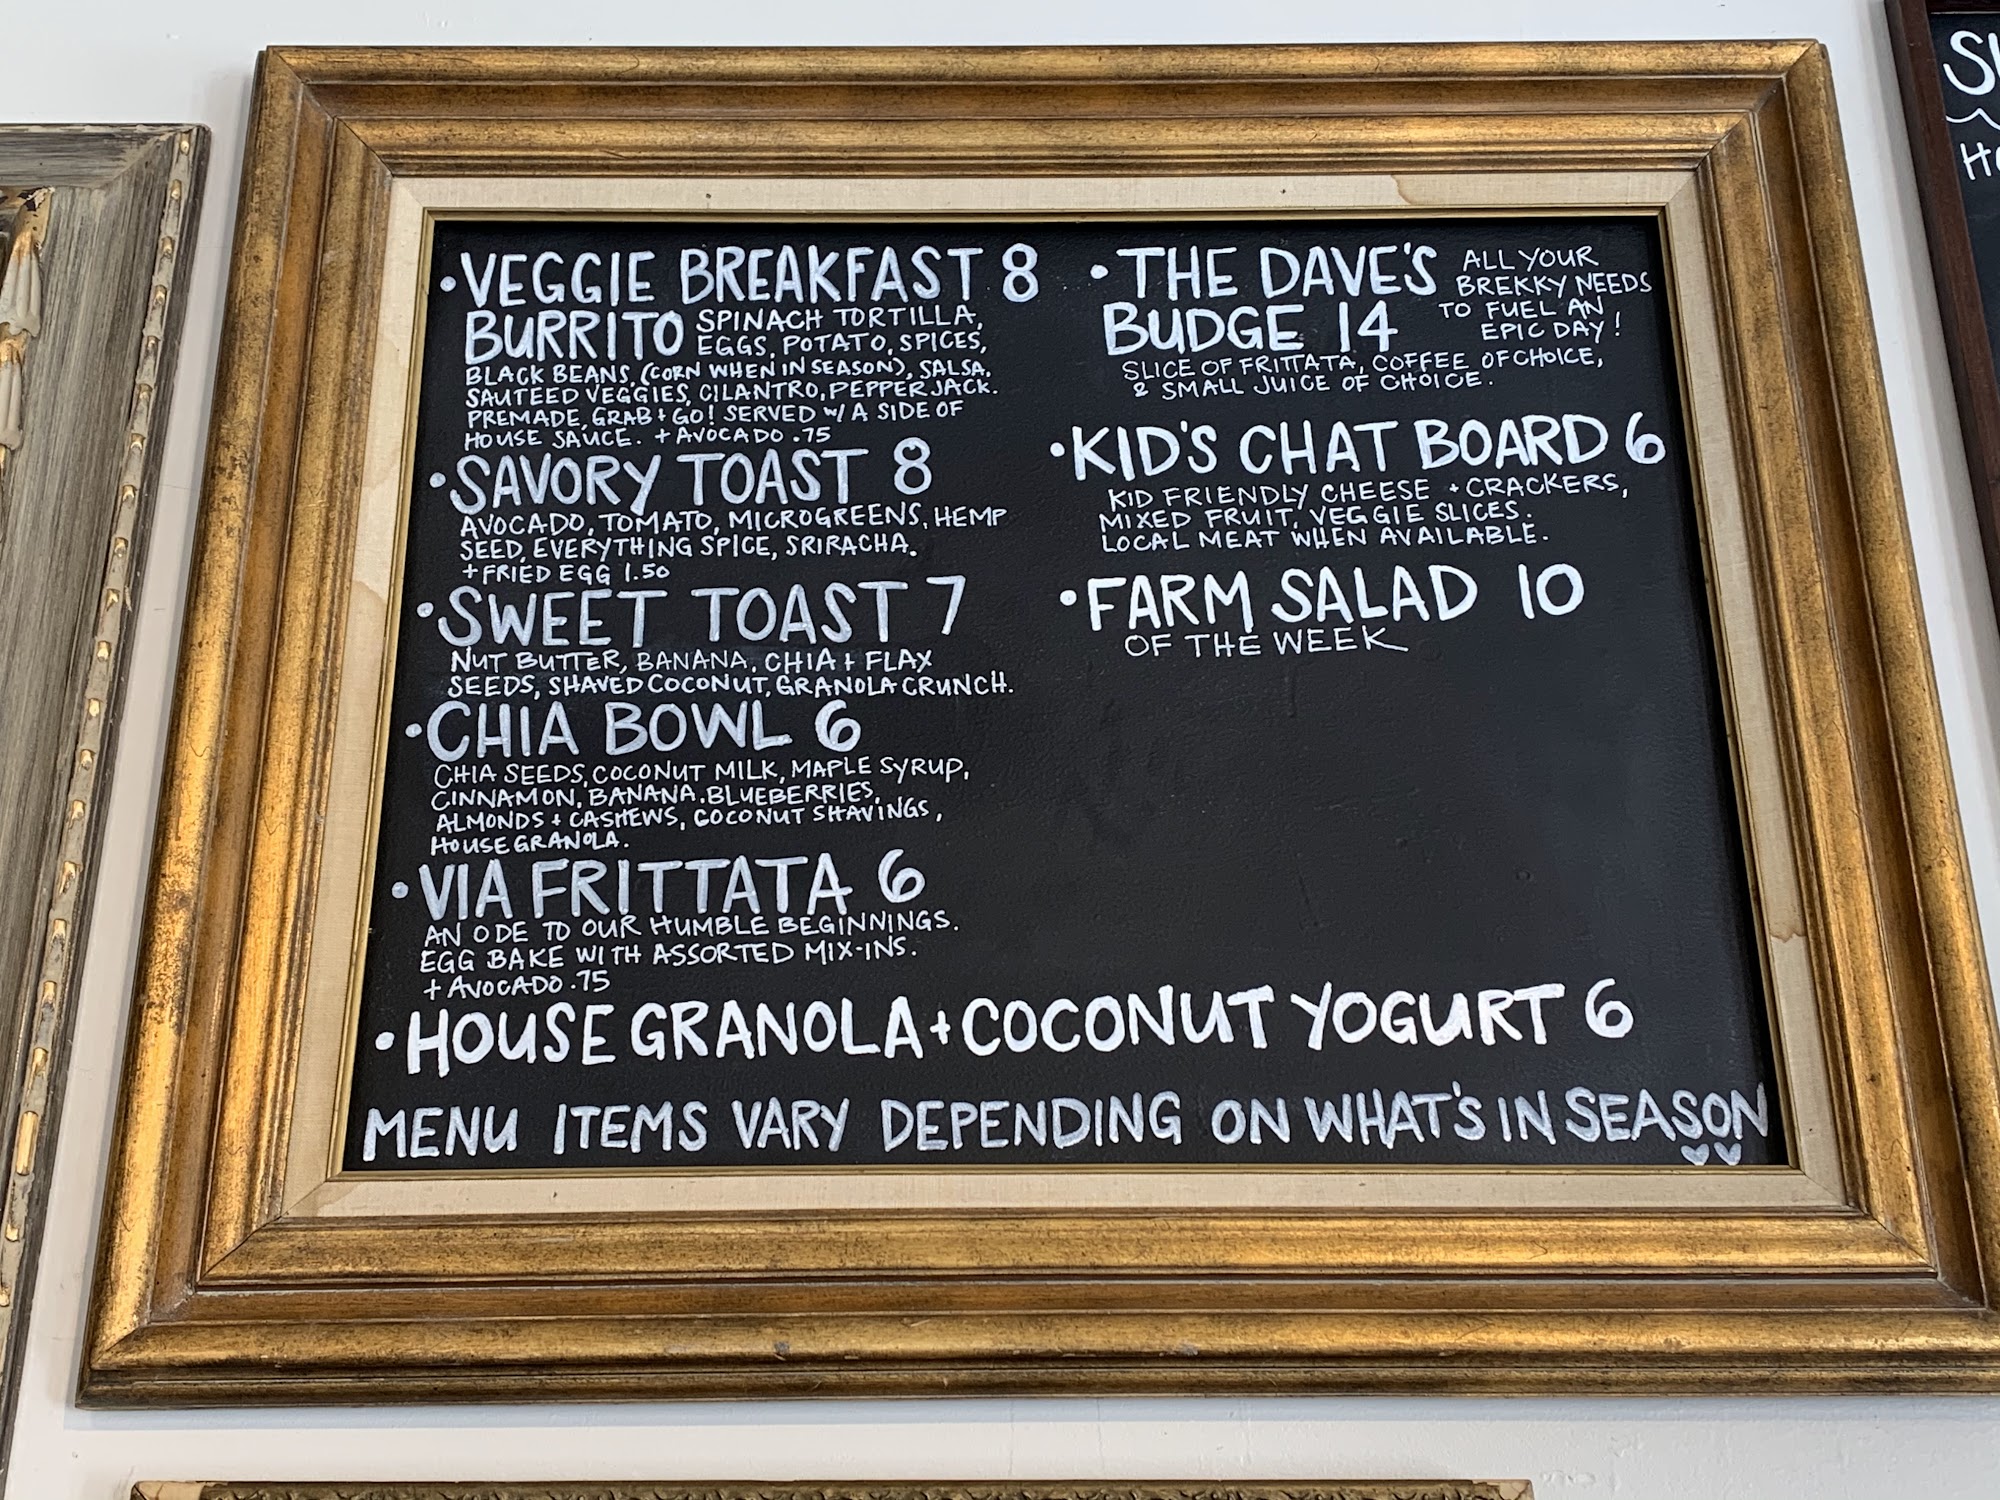 • VEGGIE BREAKFAST 8
BURRITO SPINACH TORTILLA,
EGGS, POTATO, SPICES,
BLACK BEANS, (CORN WHEN IN SEASON), SALSA,
SAUTEED VEGGIES, CILANTRO, PEPPER JACK.
PREMADE, GRAB + GO! SERVED W/ A SIDE OF
HOUSE SAUCE. + AVOCADO .75
• SAVORY TOAST 8
AVOCADO, TOMATO, MICROGREENS, HEMP
SEED, EVERYTHING SPICE, SRIRACHA.
+ FRIED EGG 1.50
• SWEET TOAST 7
NUT BUTTER, BANANA, CHIA + FLAX
SEEDS, SHAVED COCONUT, GRANOLA CRUNCH.
• CHIA BOWL 6
CHIA SEEDS, COCONUT MILK, MAPLE SYRUP,
CINNAMON, BANANA, BLUEBERRIES,
ALMONDS + CASHEWS, COCONUT SHAVINGS,
HOUSE GRANOLA.
• VIA FRITTATA 6
AN ODE TO OUR HUMBLE BEGINNINGS.
EGG BAKE WITH ASSORTED MIX-INS.
+ AVOCADO .75
• THE DAVE'S
BUDGE 14
ALL YOUR
BREKKY NEEDS
TO FUEL AN
EPIC DAY!
SLICE OF FRITTATA, COFFEE OF CHOICE,
& SMALL JUICE OF CHOICE.
• KID'S CHAT BOARD 6
KID FRIENDLY CHEESE + CRACKERS,
MIXED FRUIT, VEGGIE SLICES.
LOCAL MEAT WHEN AVAILABLE.
• FARM SALAD 10
OF THE WEEK
• HOUSE GRANOLA + COCONUT YOGURT 6
MENU ITEMS VARY DEPENDING ON WHAT'S IN SEASON